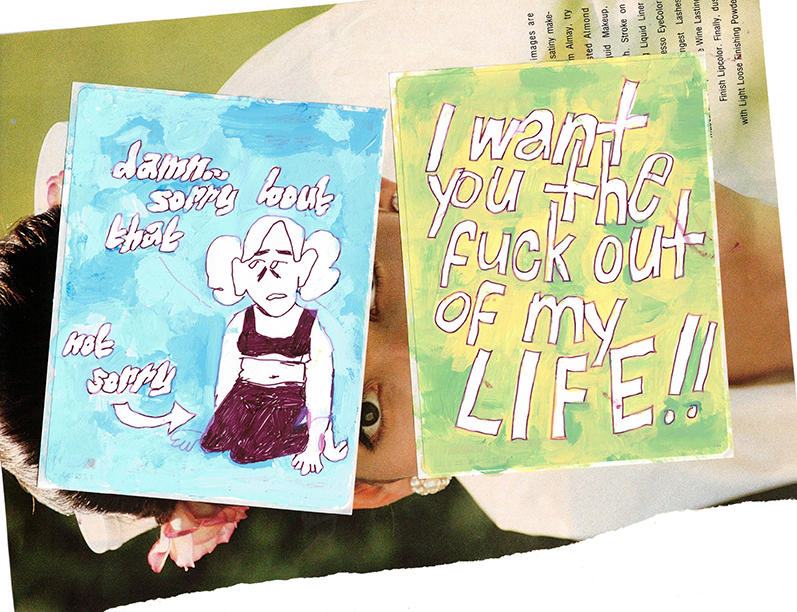 damn...
sorry bout
that
not
sorry
ew
I want
you the
fuck out
of my
LIFE!!
images are
satiny make-
Almay, try
Almond
Makeup,
Stroke on
Liquid Liner
EyeColor
Lashes
Wine Lasting
Finish Lipcolor. Finally,
with Light Loose Finishing